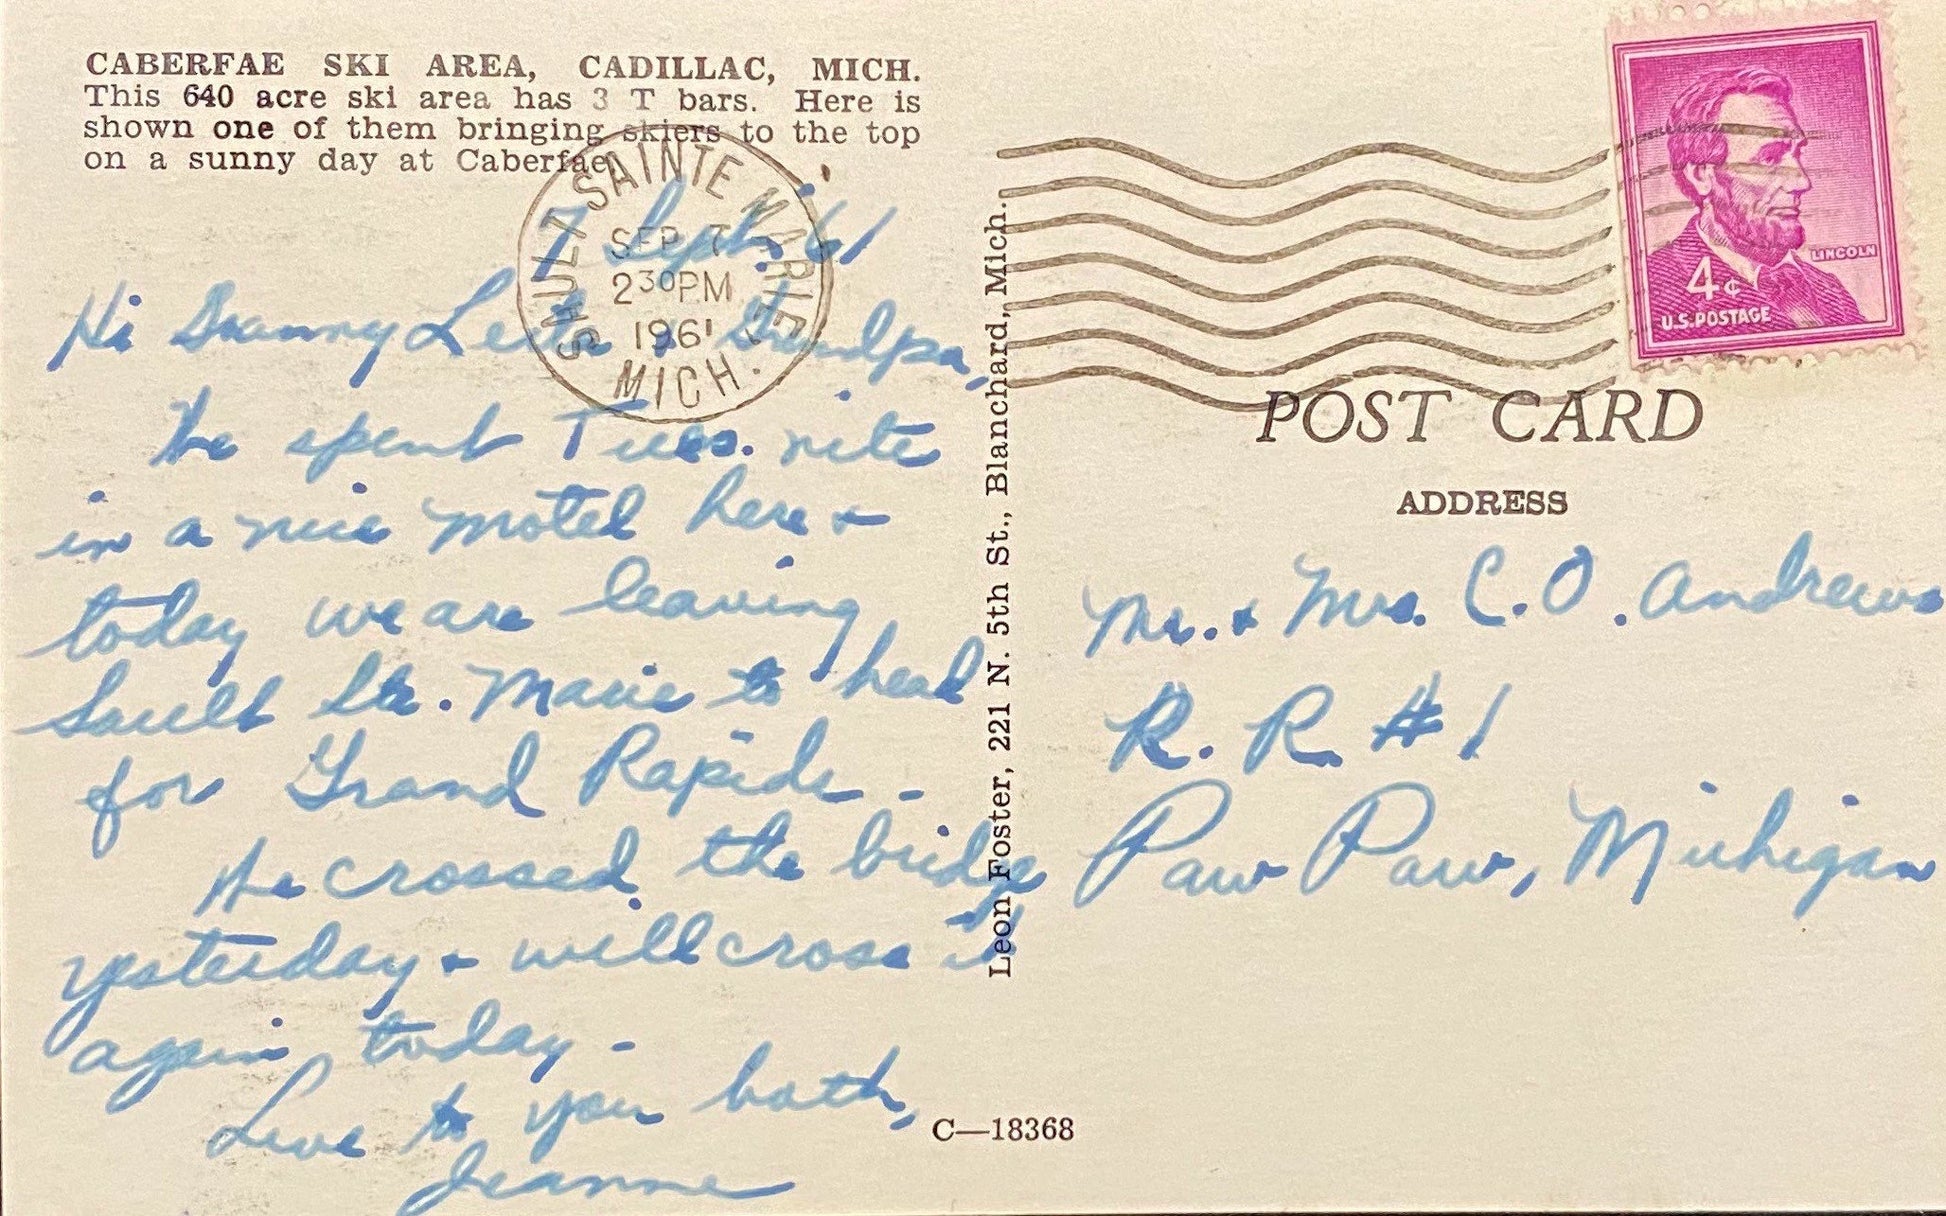 CABERFAE SKI AREA, CADILLAC, MICH.
This 640 acre ski area has 3 T bars. Here is
shown one of them bringing skiers to the top
on a sunny day at Caberfae.
SAULT SAINTE MARIE, MICH.
SEP 7
2 30 PM
1961
7 Sept. '61
Hi Granny Leita & Grandpa,
We spent Tues. nite
in a nice motel here &
today we are leaving
Sault Ste. Marie to head
for Grand Rapids -
We crossed the bridge
yesterday & will cross it
again today -
Love to you both,
Jeanne
Leon Foster, 221 N. 5th St., Blanchard, Mich.
C—18368
LINCOLN
4¢
U.S. POSTAGE
POST CARD
ADDRESS
Mr. & Mrs. C. O. Andrews
R. R. #1
Paw Paw, Michigan